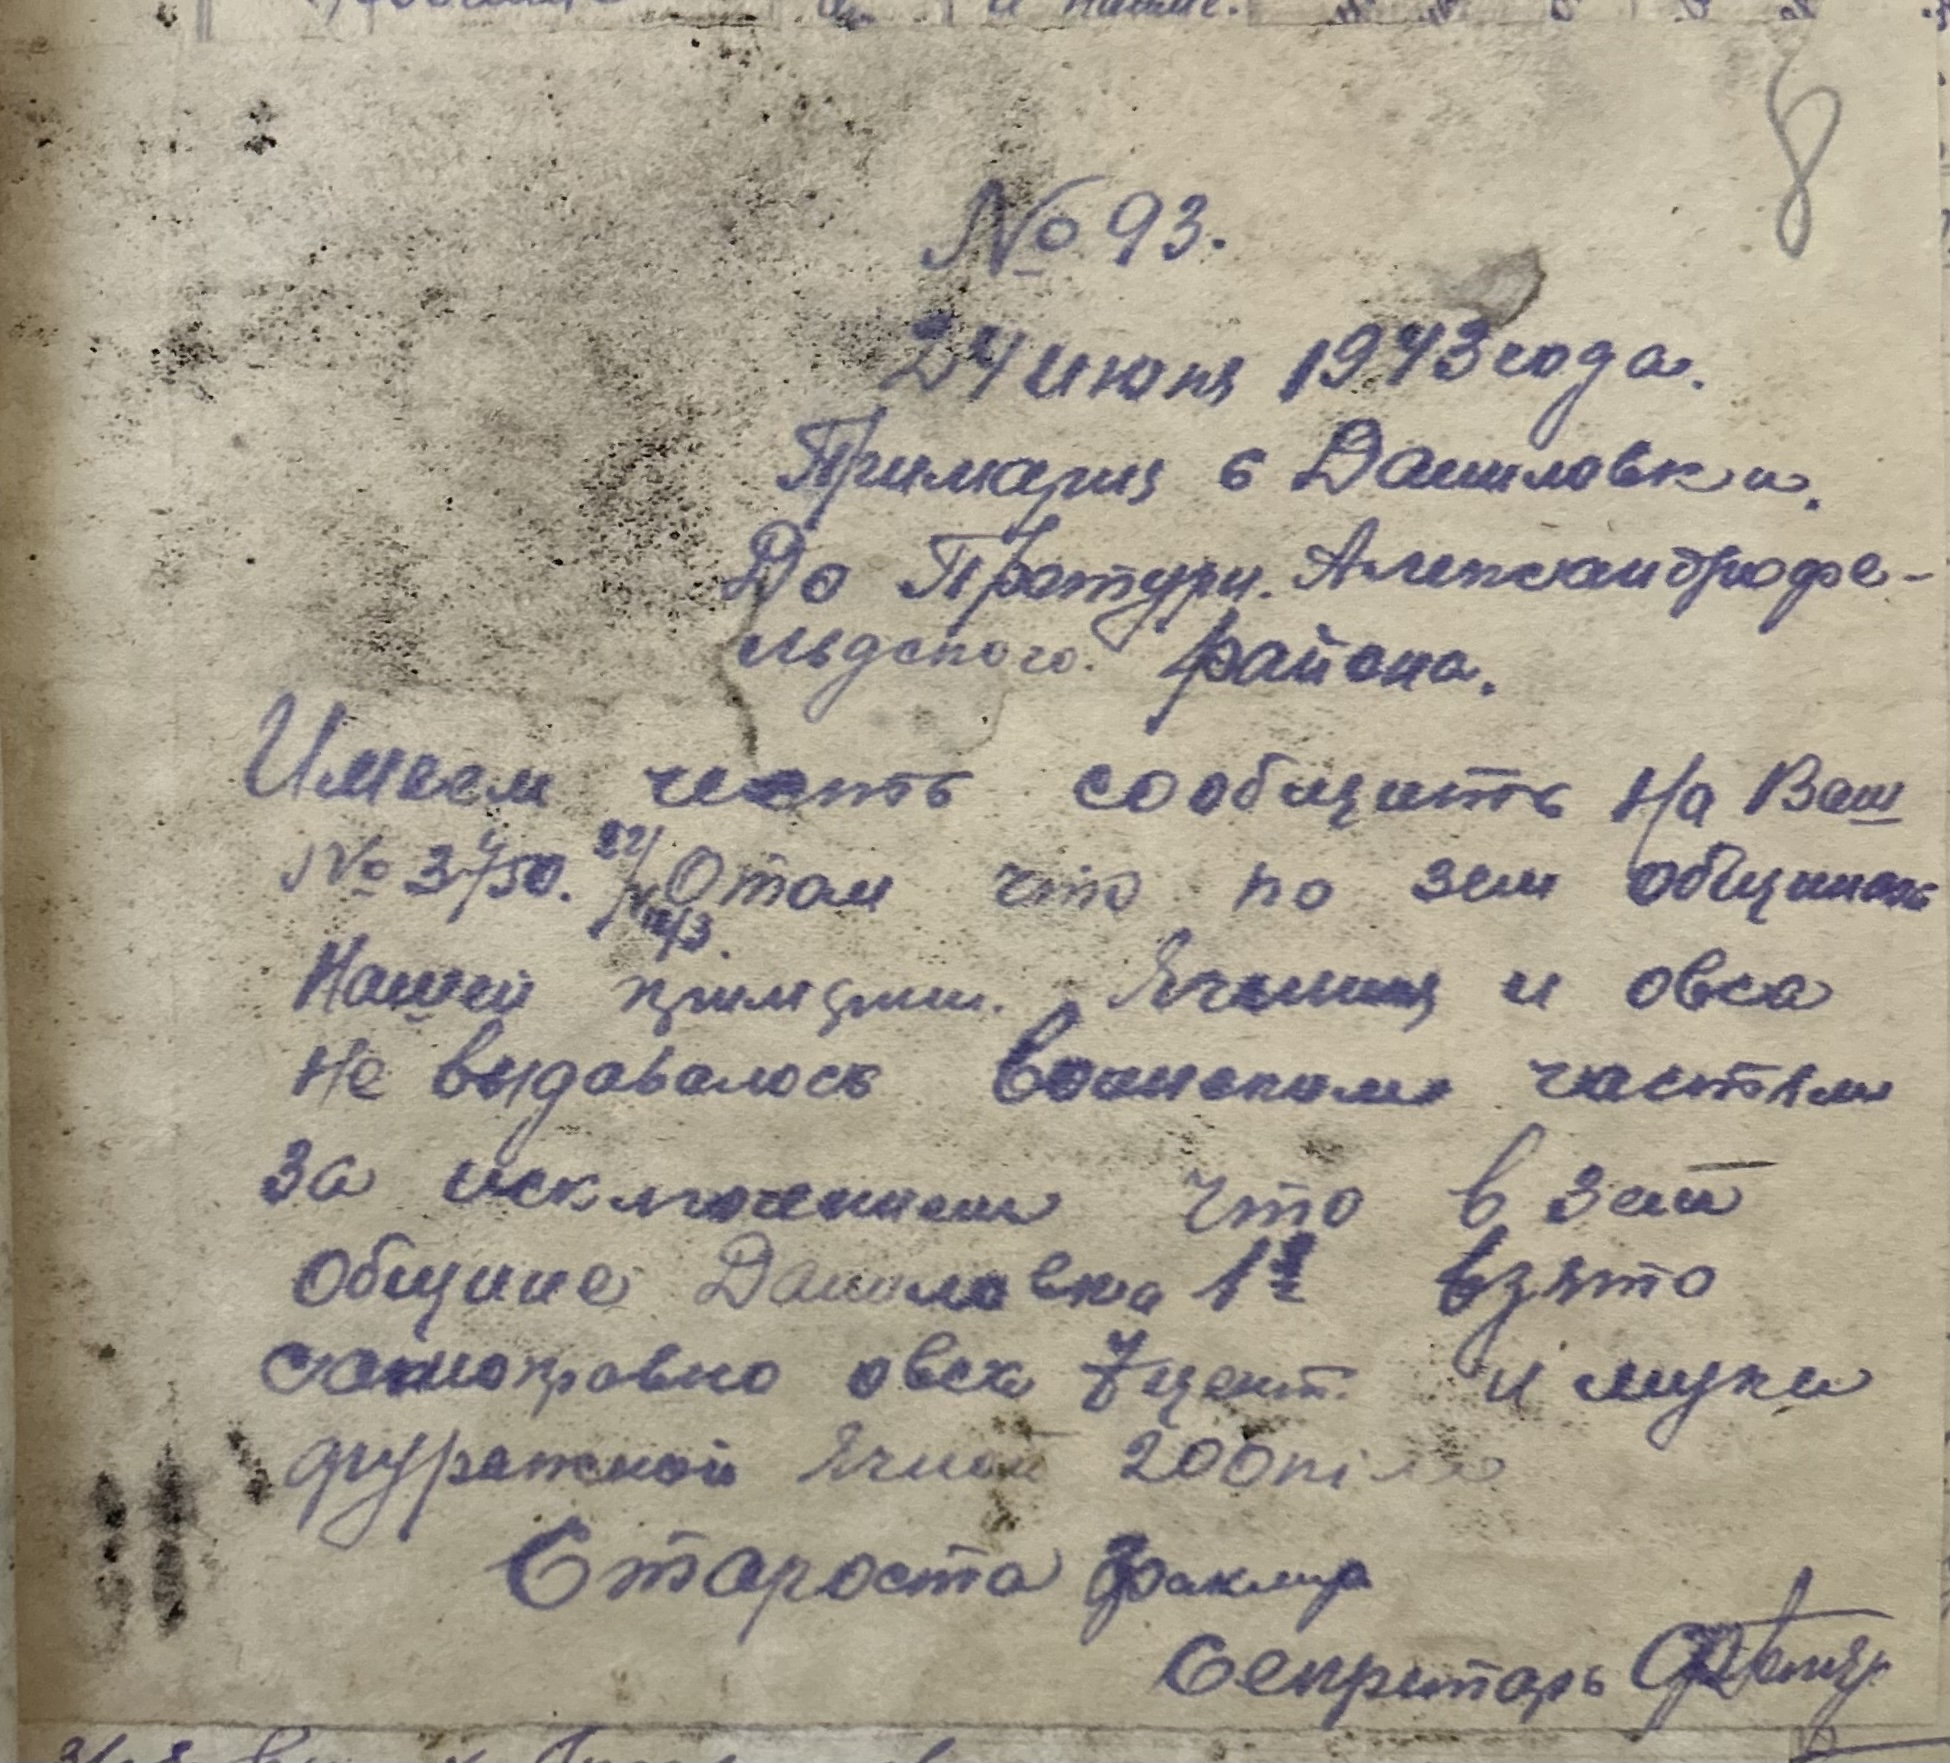 и
8
№ 93.
24 июня 1943 года.
Примария с Даниловки.
До Претури. Александрофе-
льдского. района.
Имеем честь сообщить На Ваш
№ 3450. 22/ О том что по зем общинам
Нашей примарии. Ячменя и овса
Не выдавалось воинским частям
За исключением что в зем
Общине Даниловка 1я взято
самоправно овса 7 цент. и муки
фуражной Ячной 200 кіл
Староста
Секретарь